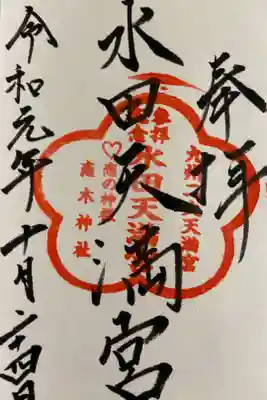 奉拝
水田天満宮
令和元年十月二十四日
九州二大天満宮
水田天満宮
恋の神様
恋木神社